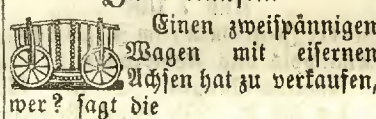 Einen zweiſpännigen
Wagen mit eiſernen
Achſen hat zu verkaufen,
wer? ſagt die